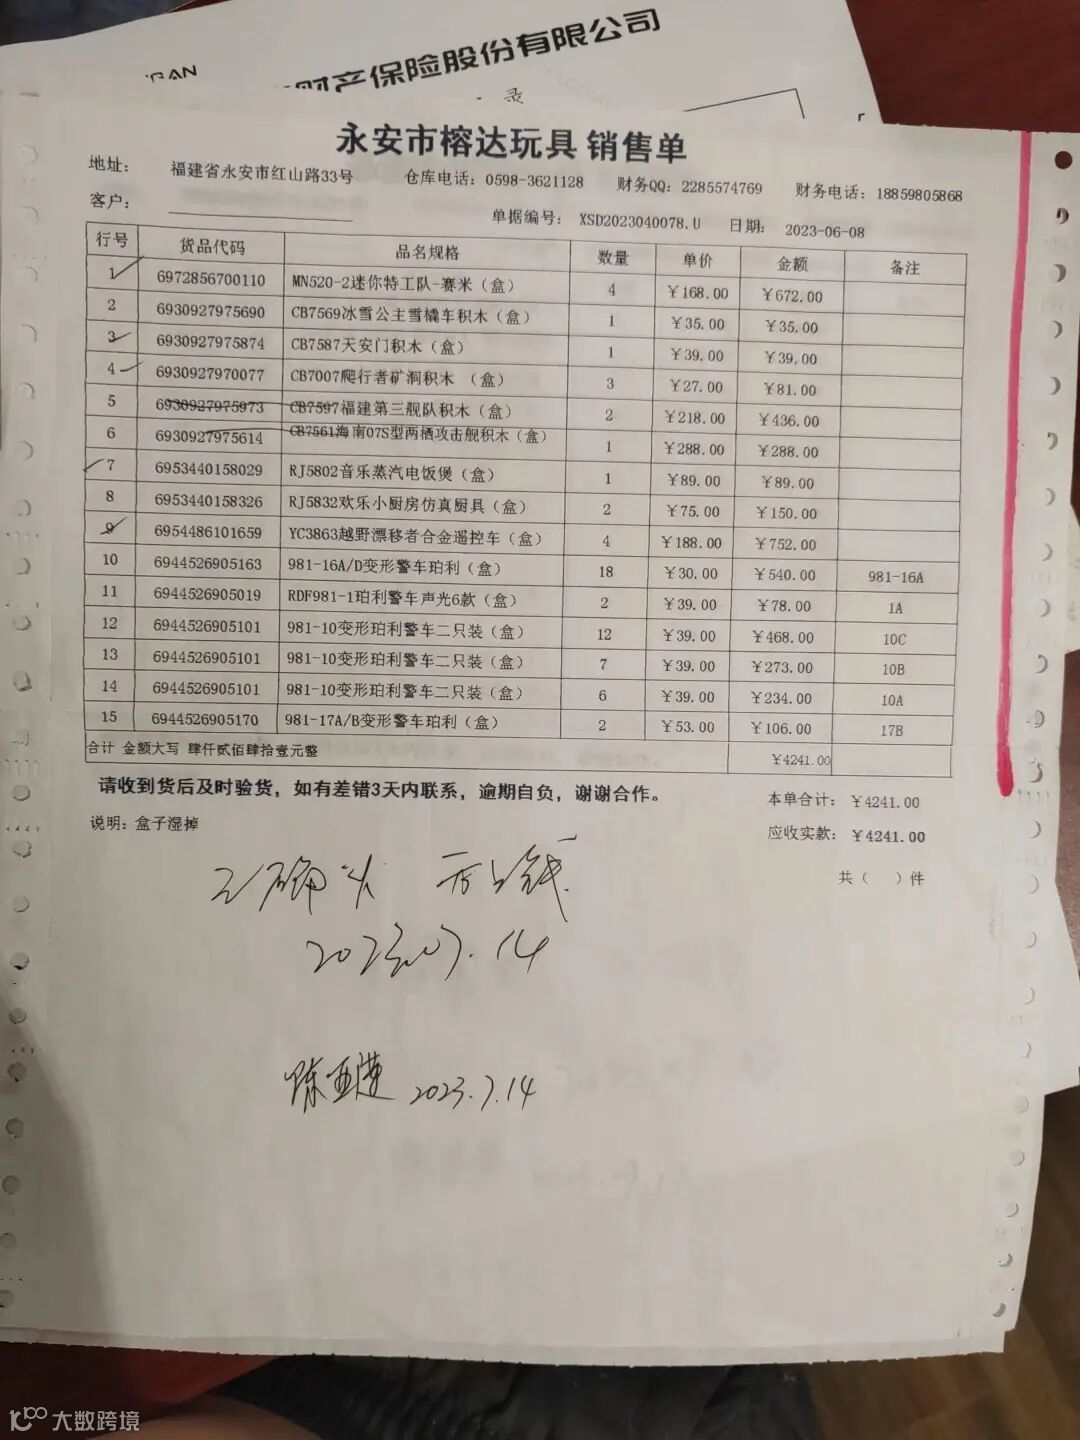 财产保险股份有限公司
录
永安市榕达玩具 销售单
地址： 福建省永安市红山路33号 仓库电话：0598-3621128 财务QQ：2285574769 财务电话：18859805868
客户： 单据编号： XSD2023040078.U 日期： 2023-06-08
行号 货品代码 品名规格 数量 单价 金额 备注
1 6972856700110 MN520-2迷你特工队-赛米（盒） 4 ￥168.00 ￥672.00
2 6930927975690 CB7569冰雪公主雪橇车积木（盒） 1 ￥35.00 ￥35.00
3 6930927975874 CB7587天安门积木（盒） 1 ￥39.00 ￥39.00
4 6930927970077 CB7007爬行者矿洞积木 （盒） 3 ￥27.00 ￥81.00
5 6930927975973 CB7597福建第三舰队积木（盒） 2 ￥218.00 ￥436.00
6 6930927975614 CB7561海南07S型两栖攻击舰积木（盒） 1 ￥288.00 ￥288.00
7 6953440158029 RJ5802音乐蒸汽电饭煲（盒） 1 ￥89.00 ￥89.00
8 6953440158326 RJ5832欢乐小厨房仿真厨具（盒） 2 ￥75.00 ￥150.00
9 6954486101659 YC3863越野漂移者合金遥控车（盒） 4 ￥188.00 ￥752.00
10 6944526905163 981-16A/D变形警车珀利（盒） 18 ￥30.00 ￥540.00 981-16A
11 6944526905019 RDF981-1珀利警车声光6款（盒） 2 ￥39.00 ￥78.00 1A
12 6944526905101 981-10变形珀利警车二只装（盒） 12 ￥39.00 ￥468.00 10C
13 6944526905101 981-10变形珀利警车二只装（盒） 7 ￥39.00 ￥273.00 10B
14 6944526905101 981-10变形珀利警车二只装（盒） 6 ￥39.00 ￥234.00 10A
15 6944526905170 981-17A/B变形警车珀利（盒） 2 ￥53.00 ￥106.00 17B
合计 金额大写 肆仟贰佰肆拾壹元整 ￥4241.00
请收到货后及时验货，如有差错3天内联系，逾期自负，谢谢合作。 本单合计： ￥4241.00
说明：盒子湿掉 应收实款： ￥4241.00
共（ ）件
2023.07.14
陈亚莲 2023.7.14
大数跨境